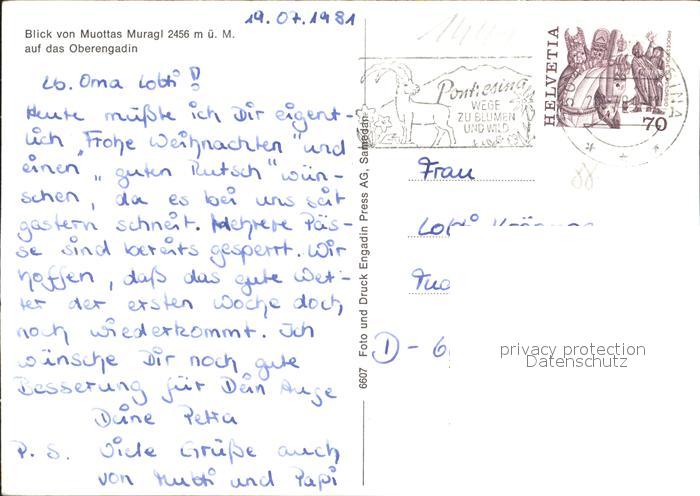 19.07.1981
Blick von Muottas Muragl 2456 m ü. M.
auf das Oberengadin
Lb. Oma Lobti!
Heute müßte ich Dir eigent-
lich „Frohe Weihnachten" und
einen „guten Rutsch" wün-
schen, da es bei uns seit
gastern schneit. Mehrere Päs-
se sind bereits gesperrt. Wir
hoffen, daß das gute Wet-
ter der ersten Woche doch
noch wiederkommt. Ich
wünsche Dir noch gute
Besserung für Dein Auge
Deine Petra
P. S. Viele Grüße auch
von Mutti und Papi
6607 Foto und Druck Engadin Press AG, Samedan
Pontresina
WEGE
ZU BLUMEN
UND WILD
HELVETIA
70
Frau
D - 6
privacy protection
Datenschutz